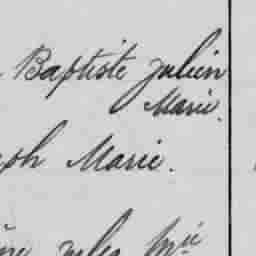 Baptiste Julien
Marie.
eph Marie.
Jules Mie